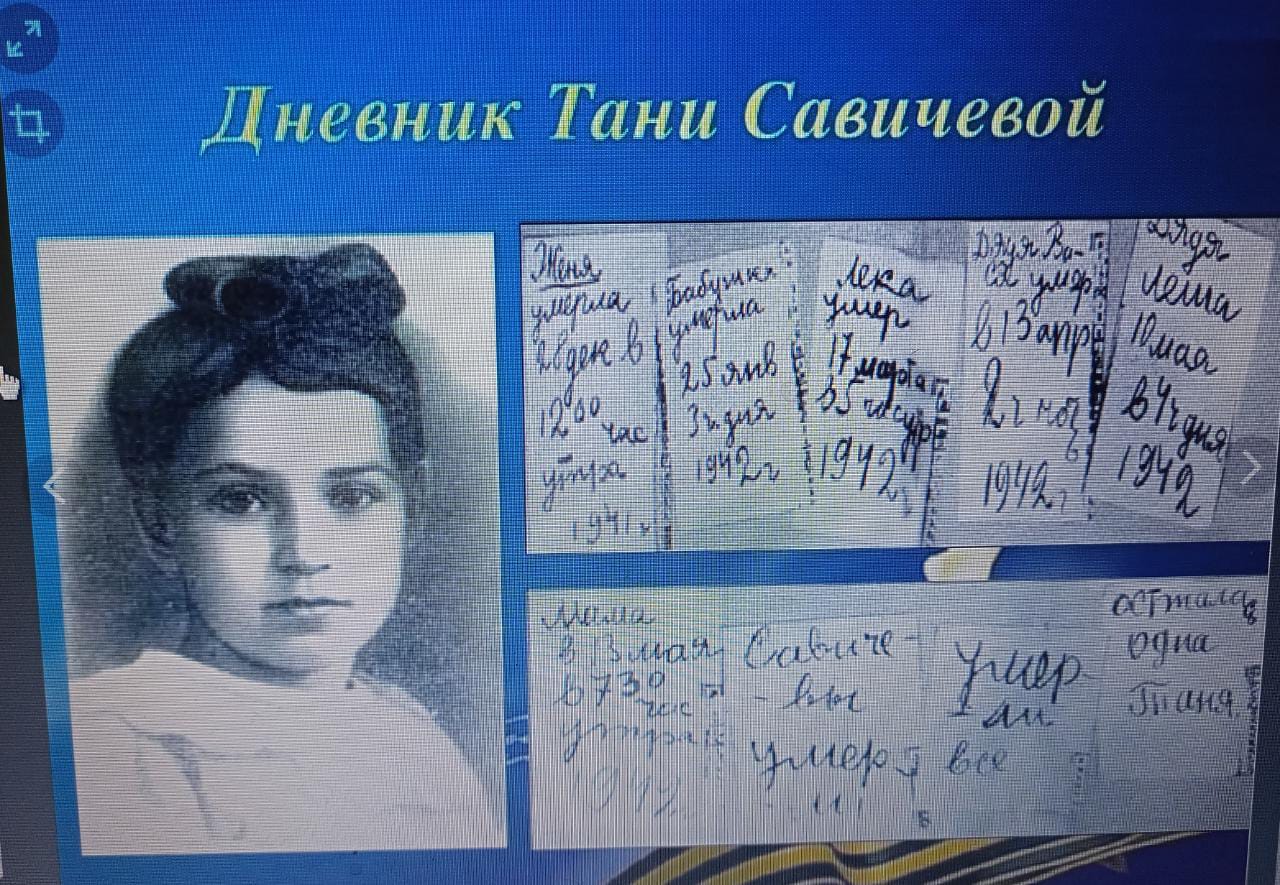 Дневник Тани Савичевой
Женя
умерла
28 дек в
12 00 час
утра
1941 г
Бабушка
умерла
25 янв
3ч. дня
1942 г
Лека
умер
17 марта
в 5 час утр
1942 г
Дядя Ва-
ся умер
в 13 апр
2ч ноч
1942 г
Дядя
Леша
10 мая
в 4ч дня
1942
Мама
в 13 мая
в 7 30
час
утра
1942
Савиче-
-вы
умер
Умер
-ли
все
осталась
одна
Таня